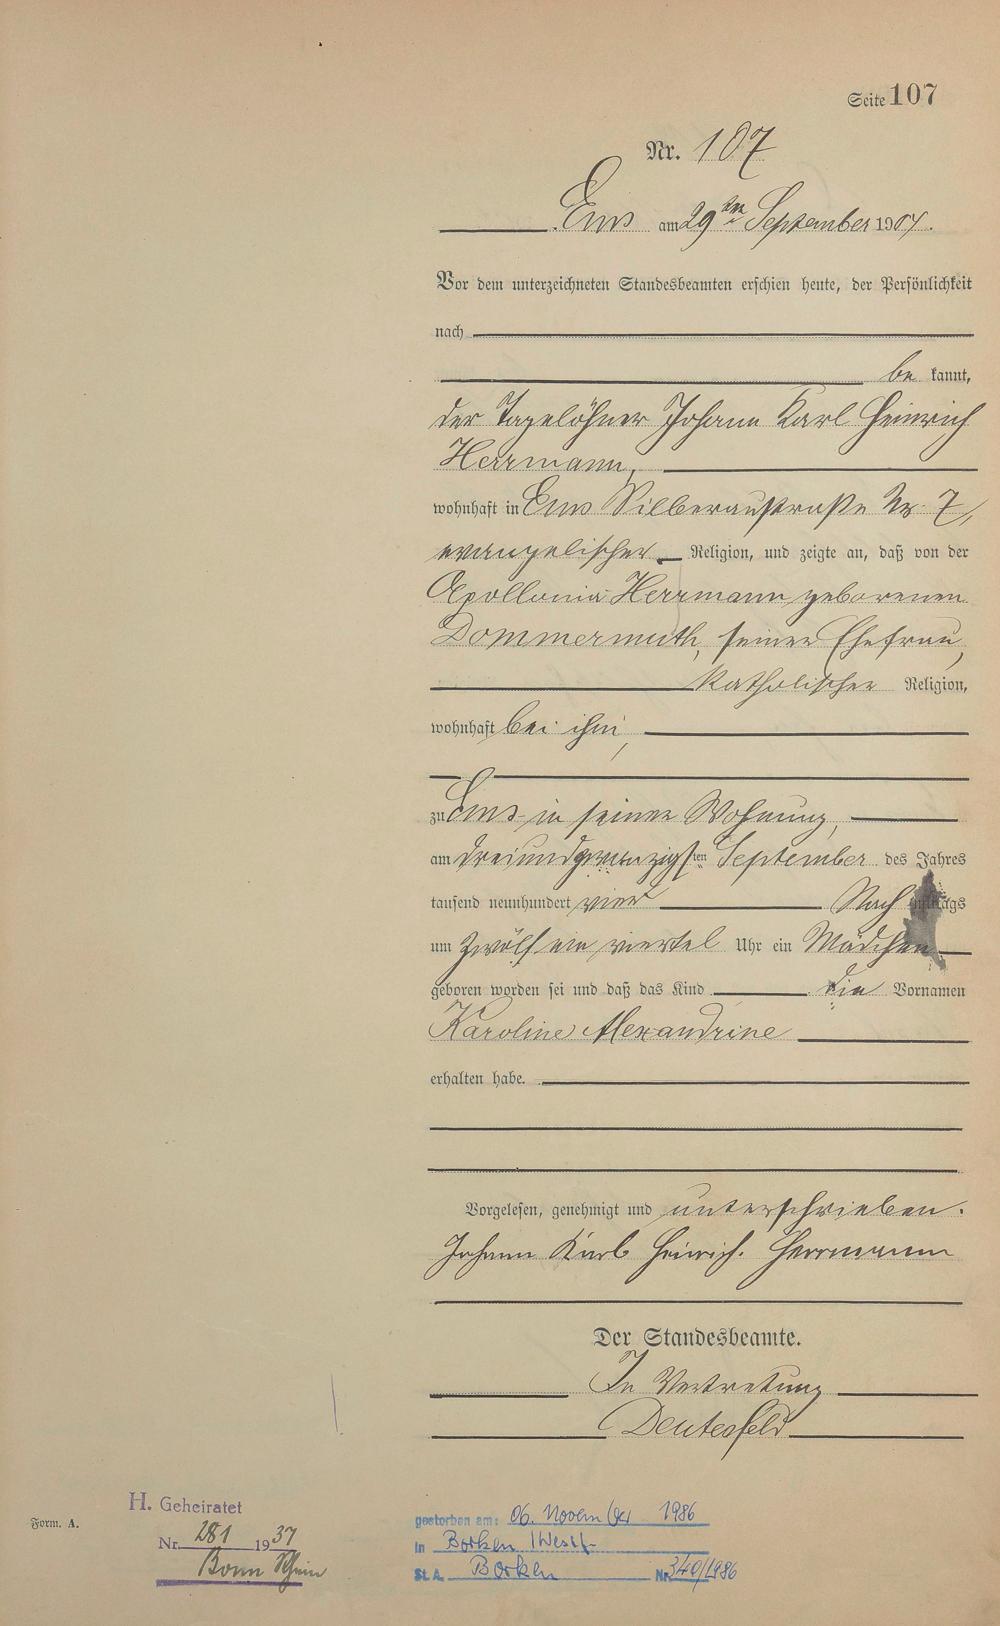 Seite 107
Nr. 107
Ems am 29ten September 1904.
Vor dem unterzeichneten Standesbeamten erschien heute, der Persönlichkeit
nach
be kannt,
der Tagelöhner Johann Karl Heinrich
Herrmann,
wohnhaft in Ems Silberaustraße Nr. 7,
evangelischer Religion, und zeigte an, daß von der
Apollonia Herrmann geborenen
Dommermuth, seiner Ehefrau,
katholischer Religion,
wohnhaft bei ihm,
zu Ems in seiner Wohnung,
am dreiundzwanzigsten September des Jahres
tausend neunhundert vier Nachmittags
um zwölf ein viertel Uhr ein Mädchen
geboren worden sei und daß das Kind die Vornamen
Karoline Alexandrine
erhalten habe.
Vorgelesen, genehmigt und unterschrieben.
Johann Karl Heinrich Herrmann
Der Standesbeamte.
In Vertretung
H. Geheiratet
Form. A.
Nr. 281 1937
Bonn Rhein
gestorben am: 06. November 1986
in Borken /Westf.
St. A. Borken Nr. 340/1986